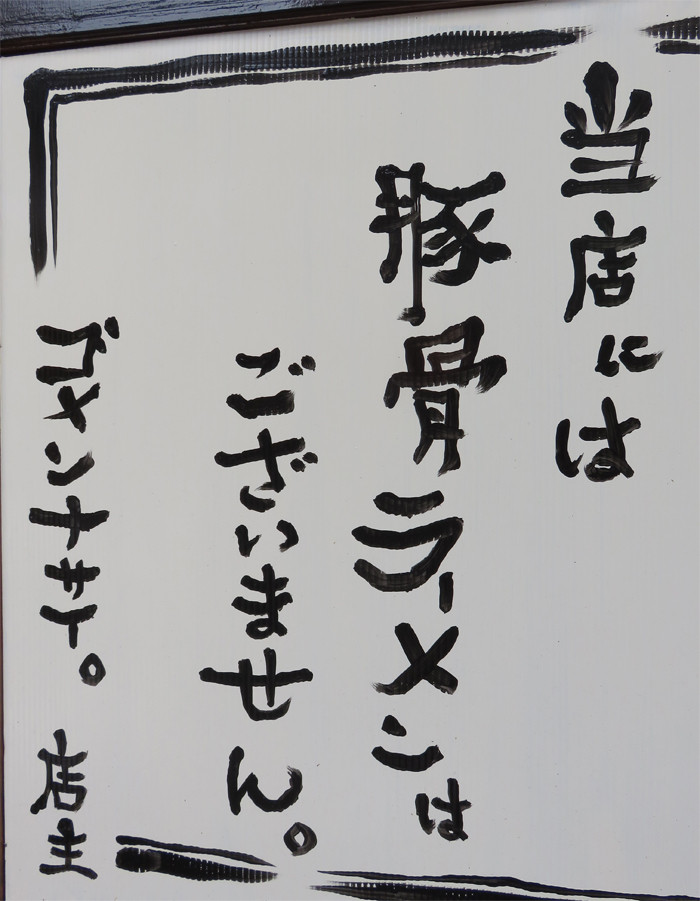 当店には
豚骨ラーメンは
ございません。
ゴメンナサイ。店主